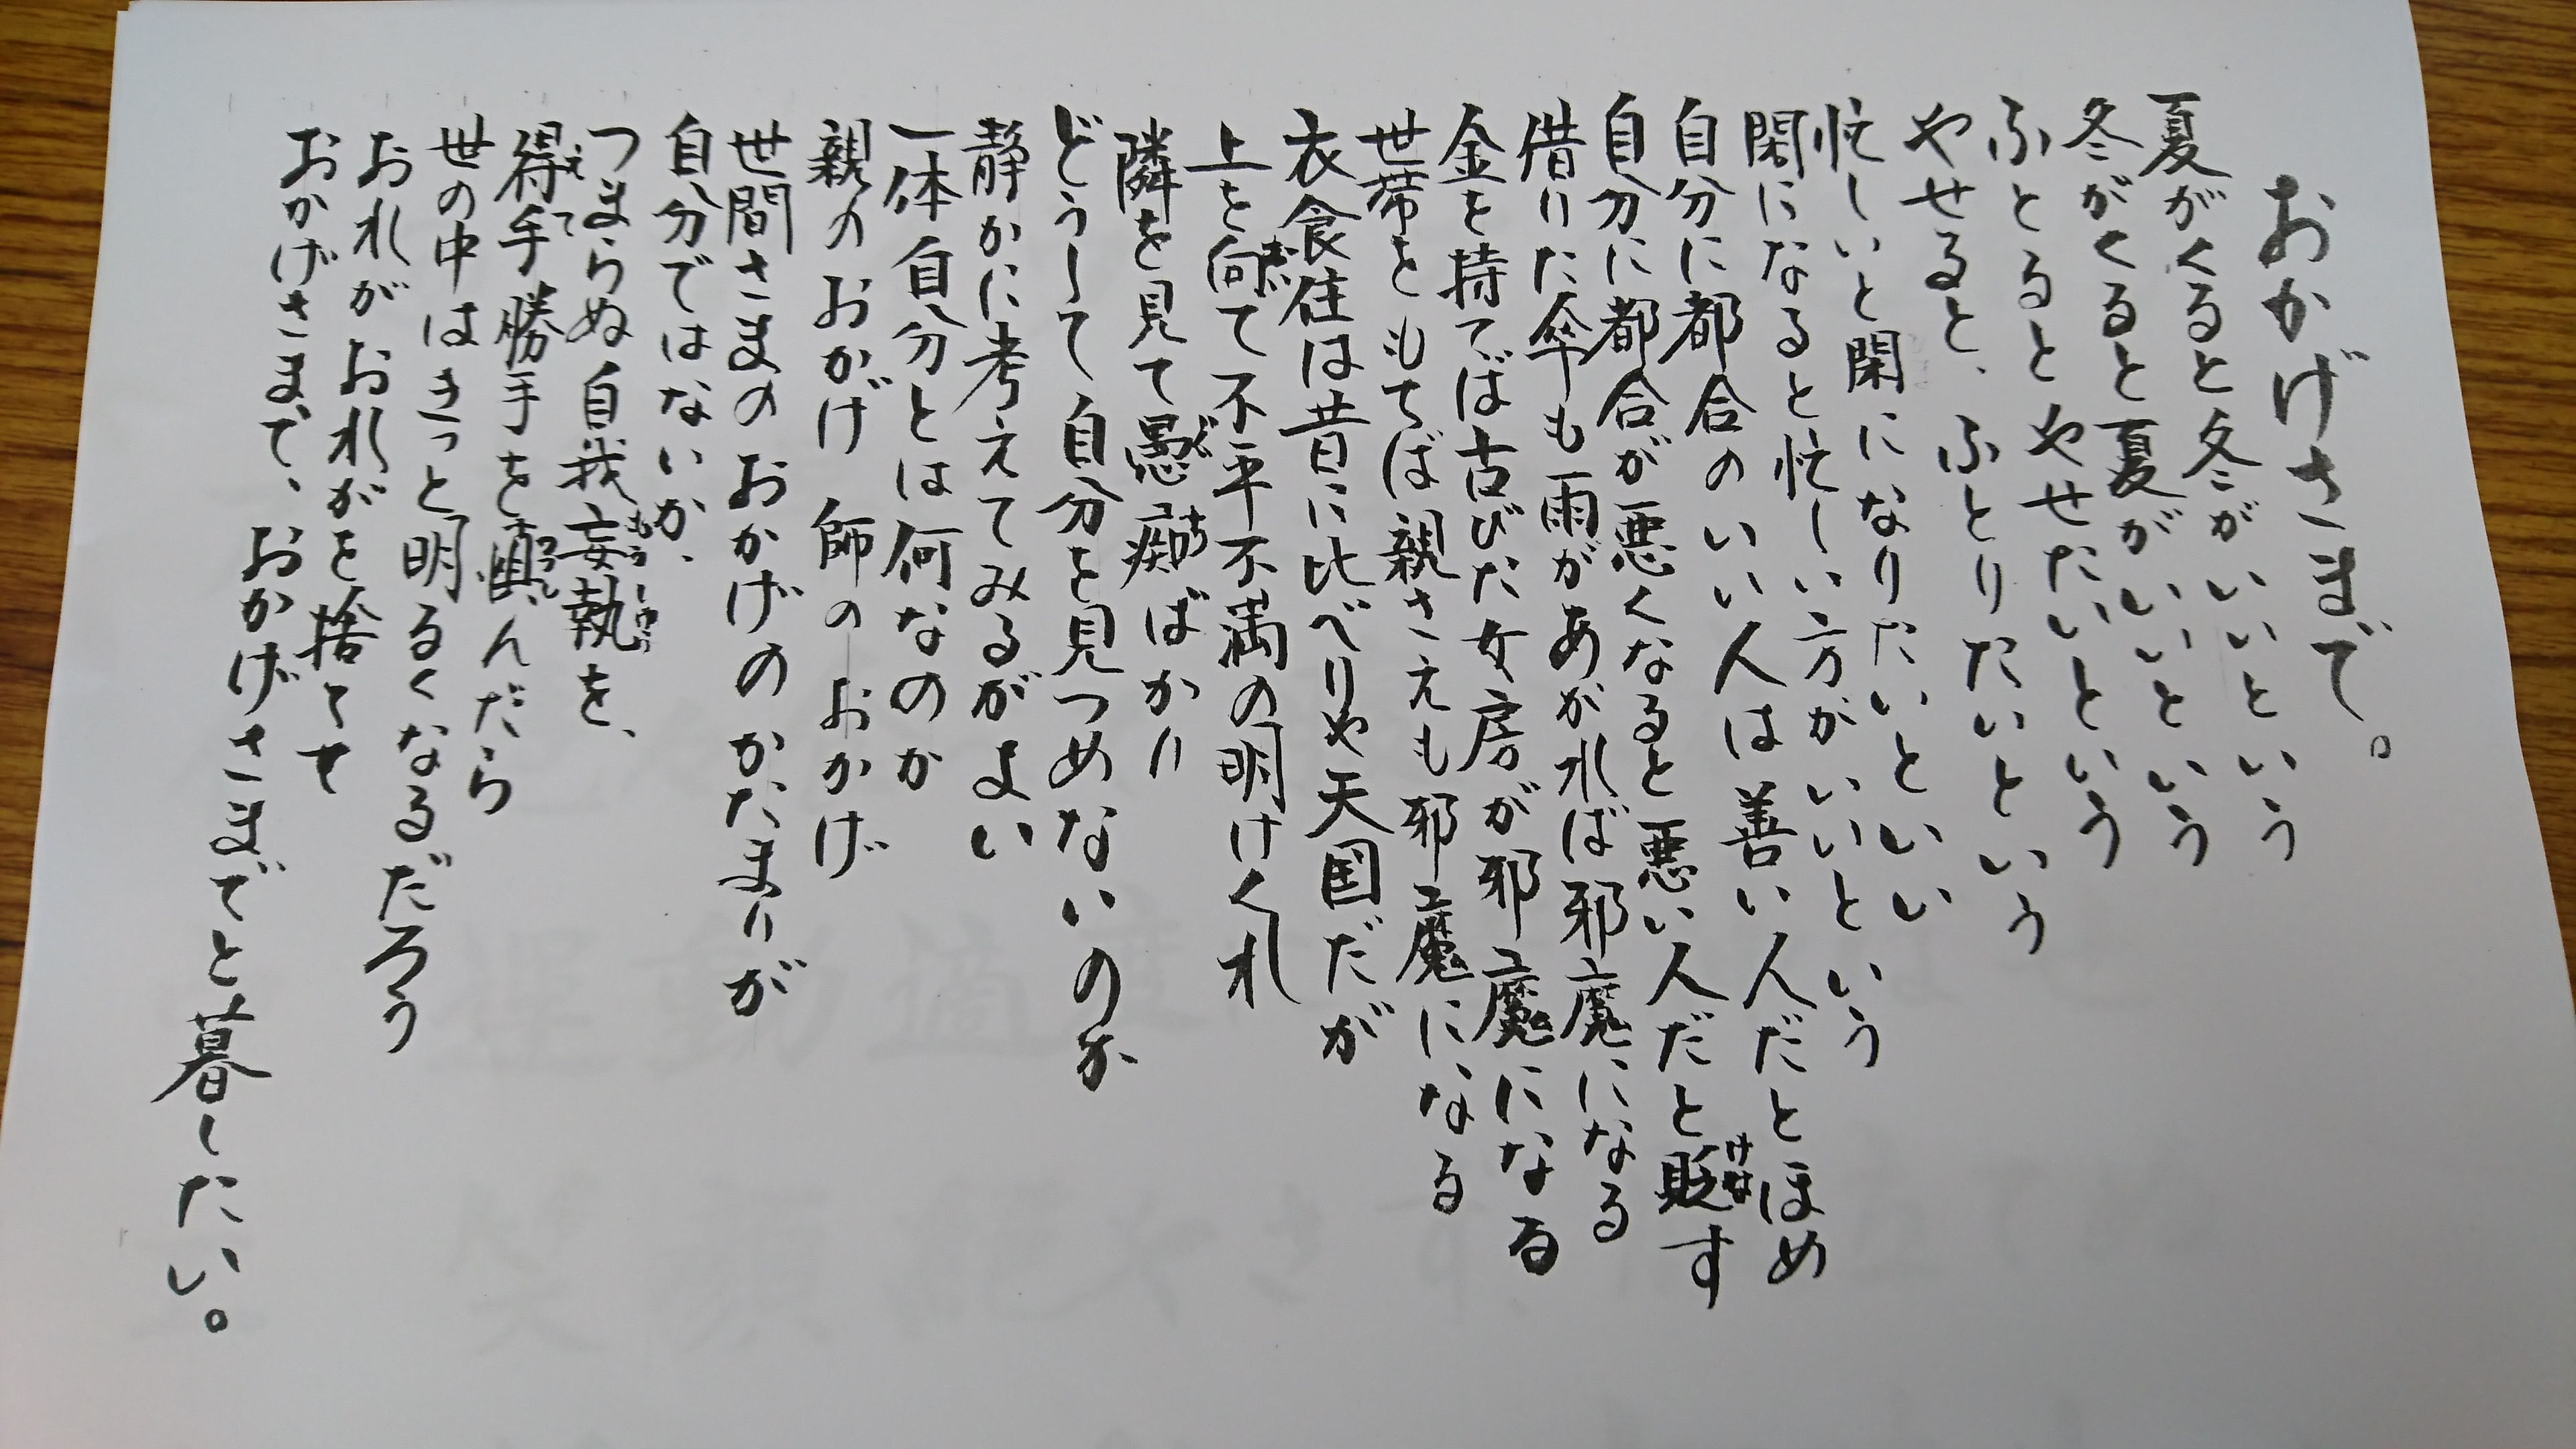 おかげさまで。
夏がくると冬がいいという
冬がくると夏がいいという
ふとるとやせたいという
やせると、ふとりたいという
忙しいと閑になりたいといい
閑になると忙しい方がいいという
自分に都合のいい人は善い人だとほめ
自分に都合が悪くなると悪い人だと貶す
借りた傘も雨があがれば邪魔になる
金を持てば古びた女房が邪魔になる
世帯をもてば親さえも邪魔になる
衣食住は昔に比べりゃ天国だが
上を向て不平不満の明けくれ
隣を見て愚痴ばかり
どうして自分を見つめないのか
静かに考えてみるがよい
一体自分とは何なのか
親のおかげ 師のおかげ
世間さまのおかげのかたまりが
自分ではないか、
つまらぬ自我妄執を、
得手勝手を慎んだら
世の中はきっと明るくなるだろう
おれがおれがを捨てて
おかげさまで、おかげさまでと暮したい。